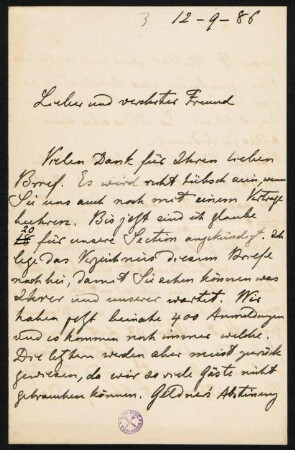 3 12-9-86
Lieber und verehrter Freund
Vielen Dank für Ihren lieben
Brief. Es wird recht hübsch sein, wenn
Sie uns auch noch mit einem Vortrage
beehren. Bis jetzt sind ich glaube
20
für unsere Section angekündigt. Ich
lege das Verzeichniss diesem Briefe
noch bei, damit Sie sehen können was
Ihrer und unserer wartet. Wir
haben jetzt beinahe 400 Anmeldungen
und es kommen noch immer welche.
Die letztern werden aber meist zurück
gewiesen, da wir so viele Gäste nicht
gebrauchen können. Geldner's